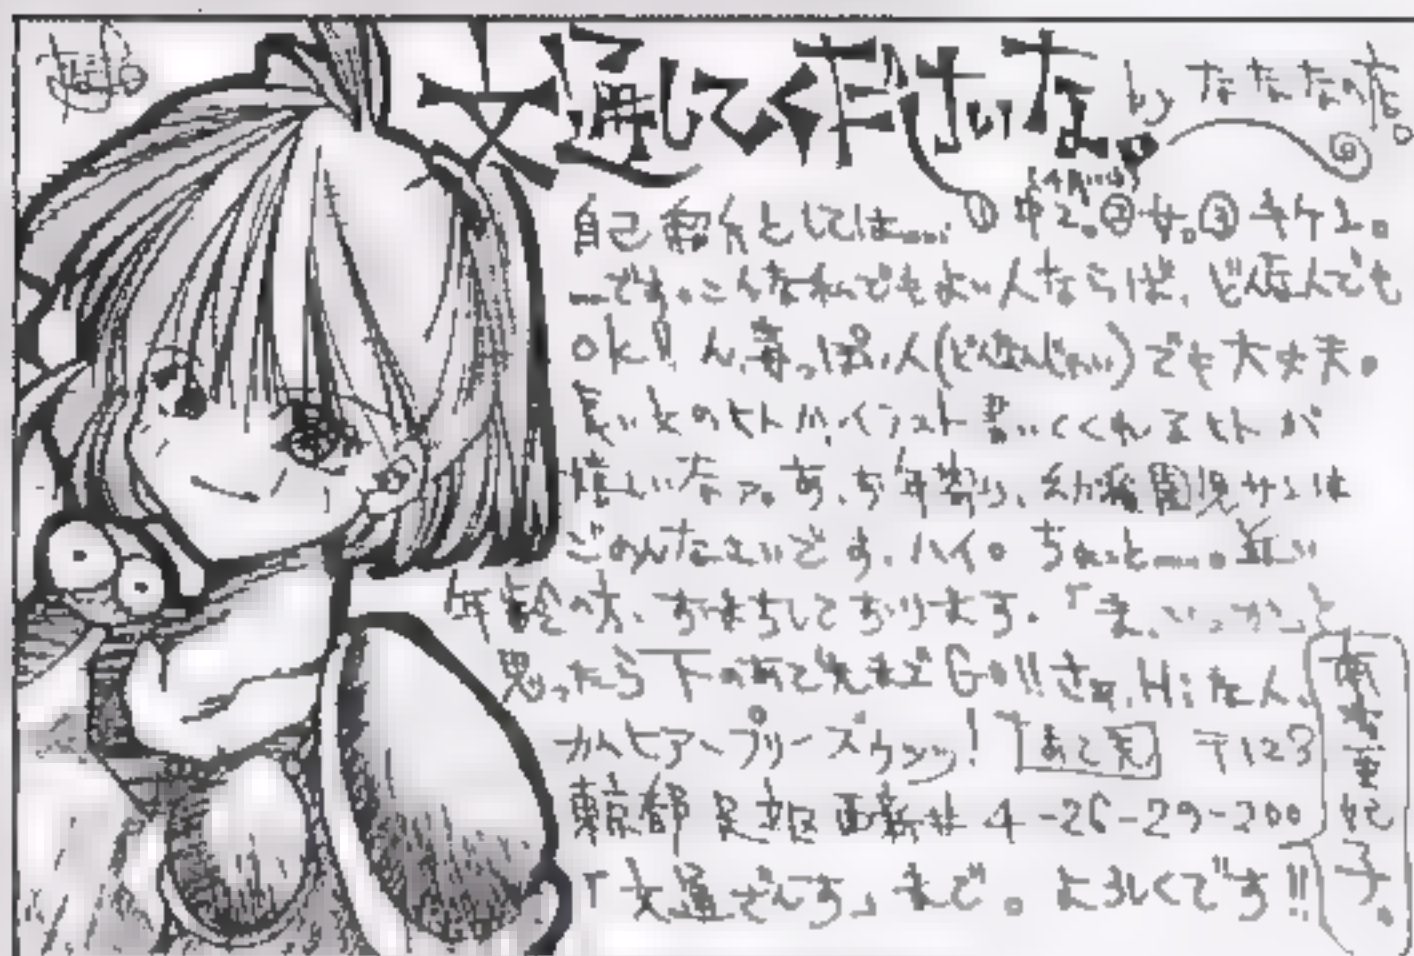 文通してくださいな。by なななの店。
(4月から)
自己紹介としては……①中2。②女。③キケン。
…です。こんな私でもよい人ならば、どんなんでも
OK!! 人、毒っぽい人(どんなんじゃい)でも大丈夫。
長いおのヒト、イラスト書いてくれるヒトが
嬉しいなァ。あ、お年寄り、幼稚園児サンは
ごめんなさいです、ハイ。ちょっと……。近い
年齢の方、おまちしております。「ま、いっか」と
思ったら下のあて先まで Go!! さぁ、Hiな人、
カムヒアープリーズウンッ! あて先 〒123
東京都足立区西新井4-26-29-200
「文通ざんす」まで。よろしくです!!